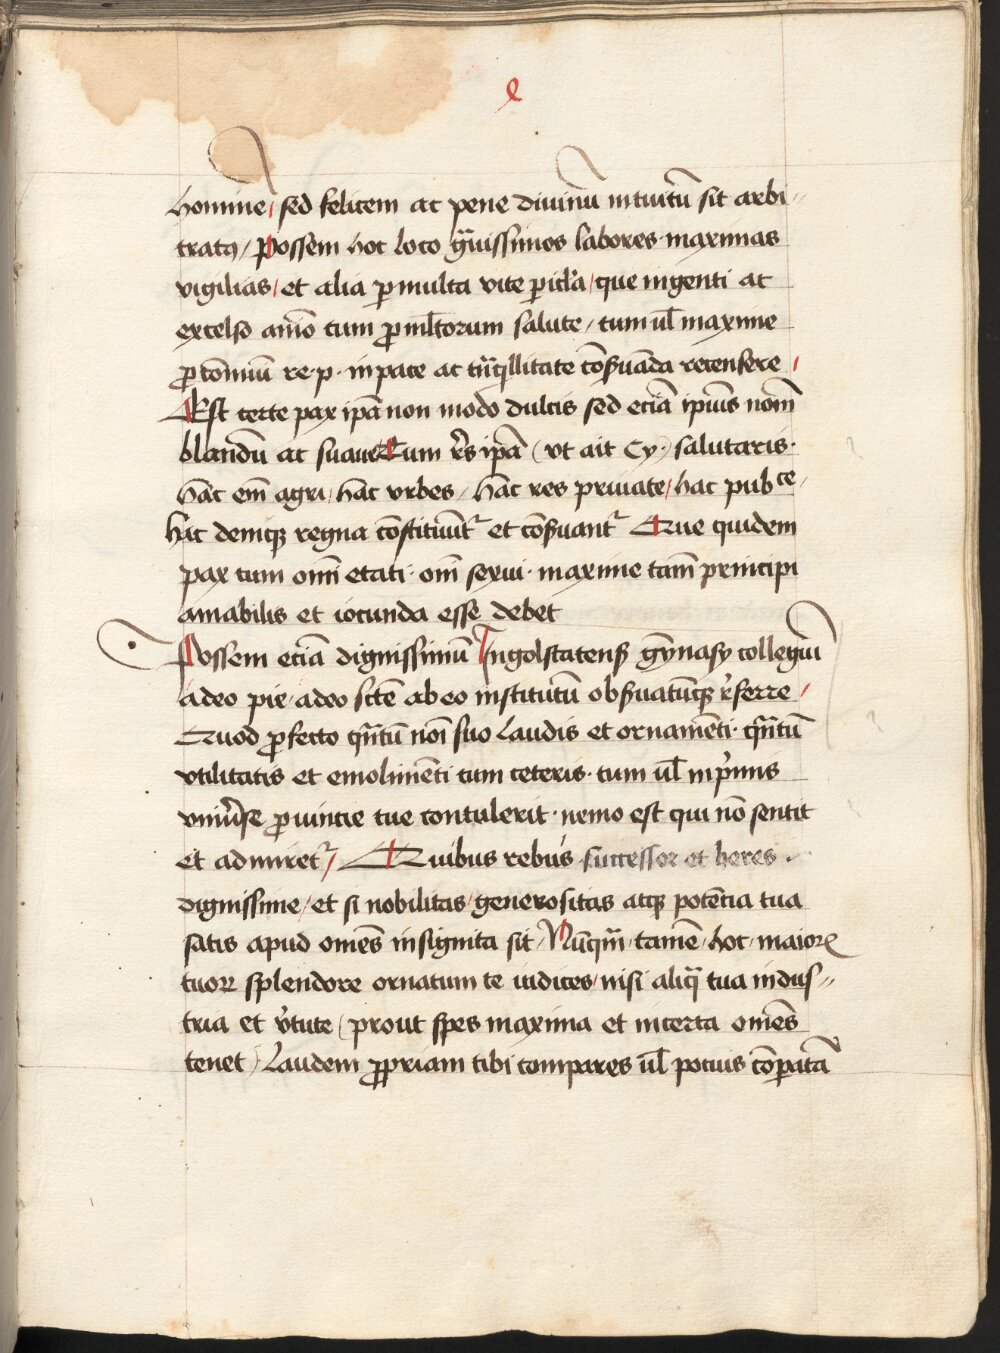 homine, sed felicem ac pene diuinũ intuitũ sit arbi⸗
tratꝰ / Possem hoc loco g̃uissimos labores maximas
vigilias / et alia ꝑmulta vite ꝑicl̃a / que ingenti ac
excelso aĩo tum ꝓ ml̃torum salute / tum ũl maxime
ꝓ cõmuni re·p· in pace ac tñqͥllitate cõẜuãda recensere /
Est certe pax ip̃a non modo dulcis sed eciã ipiꝰ nom̃
blandũ ac suaue Tum r̃s ip̃a (vt ait Cy·) salutaris·
hãc em̃ agri / hãc vrbes / hãc res priuate / hac pubce /
hac deniqꝫ regna cõstituũt᷑ et cõẜuant᷑ Que quidem
pax cum om̃i etati · om̃i sexui · maxime tam̃ principi
amabilis et iocunda esse debet
Possem eciã dignissimũ Ingolstatenẜ gỹnasy collegiũ
adeo pie · adeo sc̃te ab eo institutũ obẜuatũqꝫ r̃ferre /
Quod ꝓfecto qñtũ noĩ suo laudis et ornamẽti · qñtũ
vtilitatis et emolimẽti tum ceteris · tum ũl inp̃mis
vniũse ꝓuincie tue contulerit · nemo est qui nõ sentit
et admiret᷑ / Quibus rebus successor et heres
dignissime / et si nobilitas / generositas atqꝫ potẽcia tua
satis apud om̃es insignita sit / Nũqͣm̃ tamẽ / hoc / maioꝝ
tuoꝝ splendore ornatum te iudices / nisi aliqͣ̃ tua indus⸗
tria et ṽtute (prout spes maxima et incerta om̃es
tenet) Laudem ꝓpriam tibi compares ũl pocius cõꝑatã